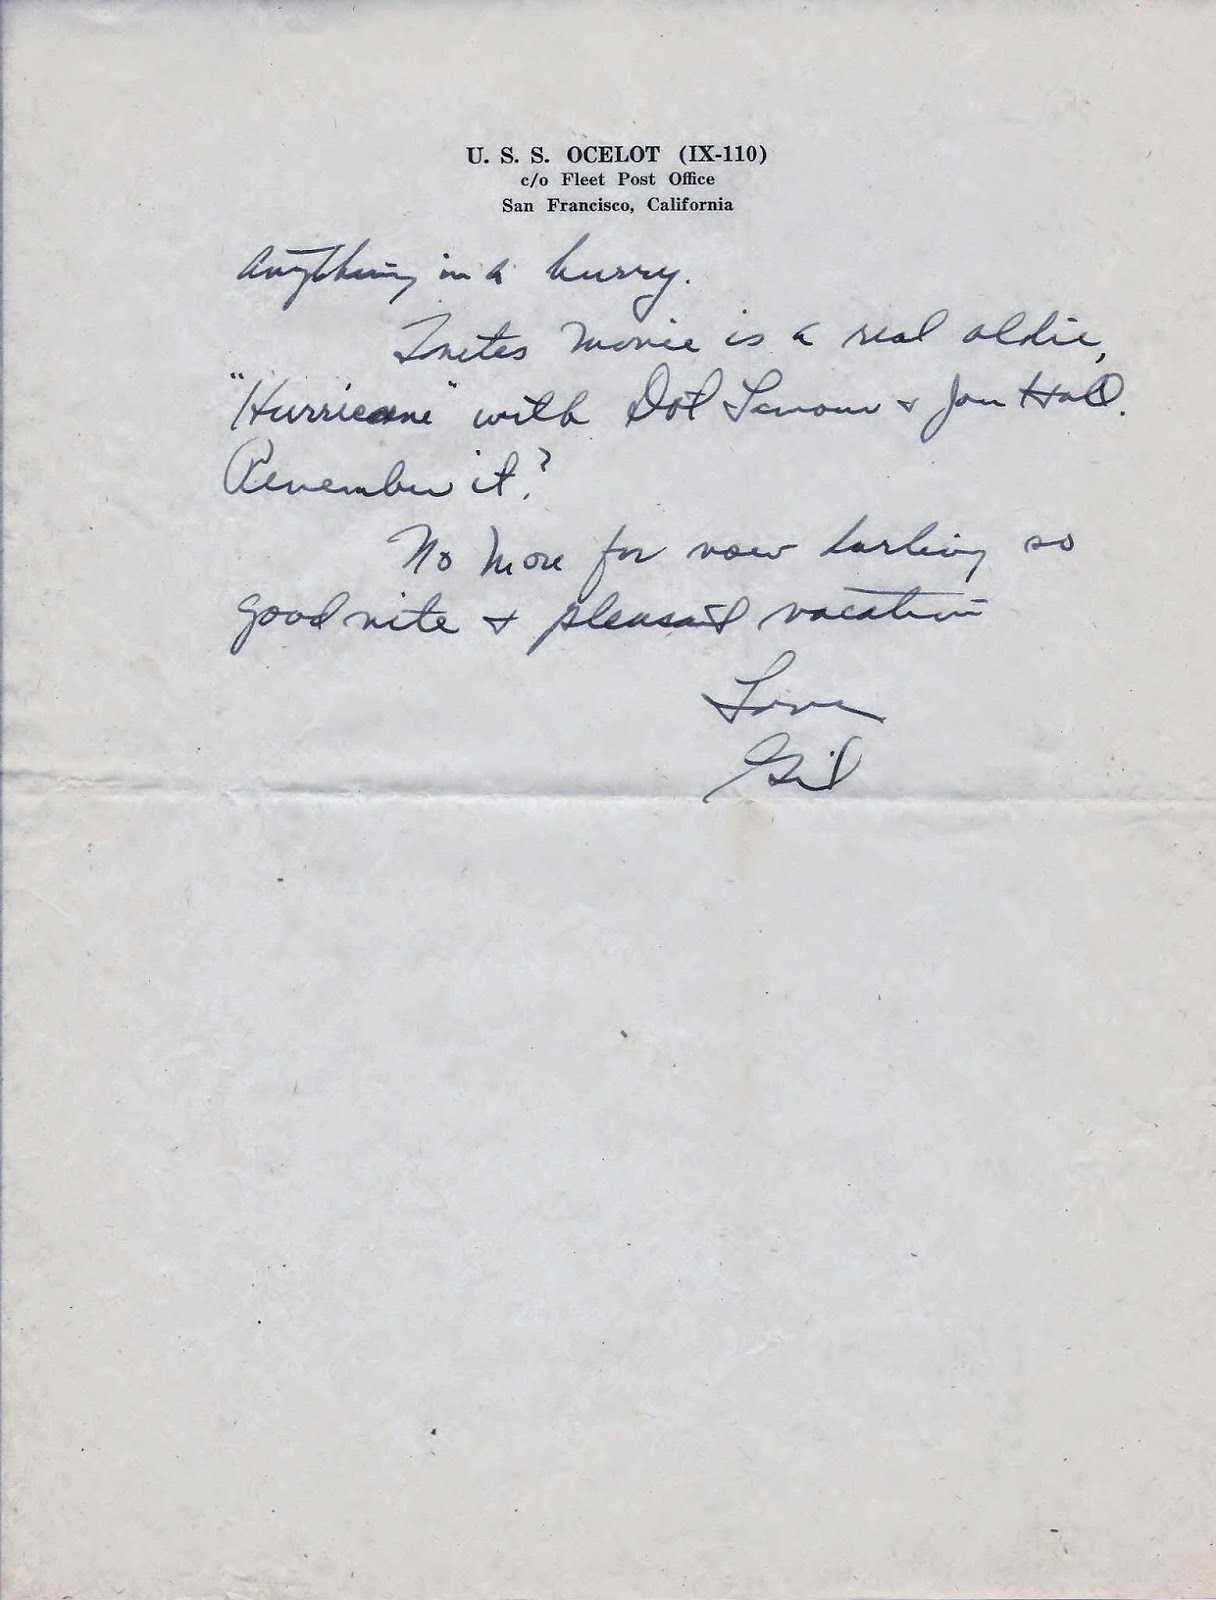 U. S. S. OCELOT (IX-110)
c/o Fleet Post Office
San Francisco, California
anything in a hurry.
Tonites movie is a real oldie,
"Hurricane" with Dot Lamour & Jon Hall.
Remember it?
No more for now darling so
good nite & pleasant vacation
Love
Gil